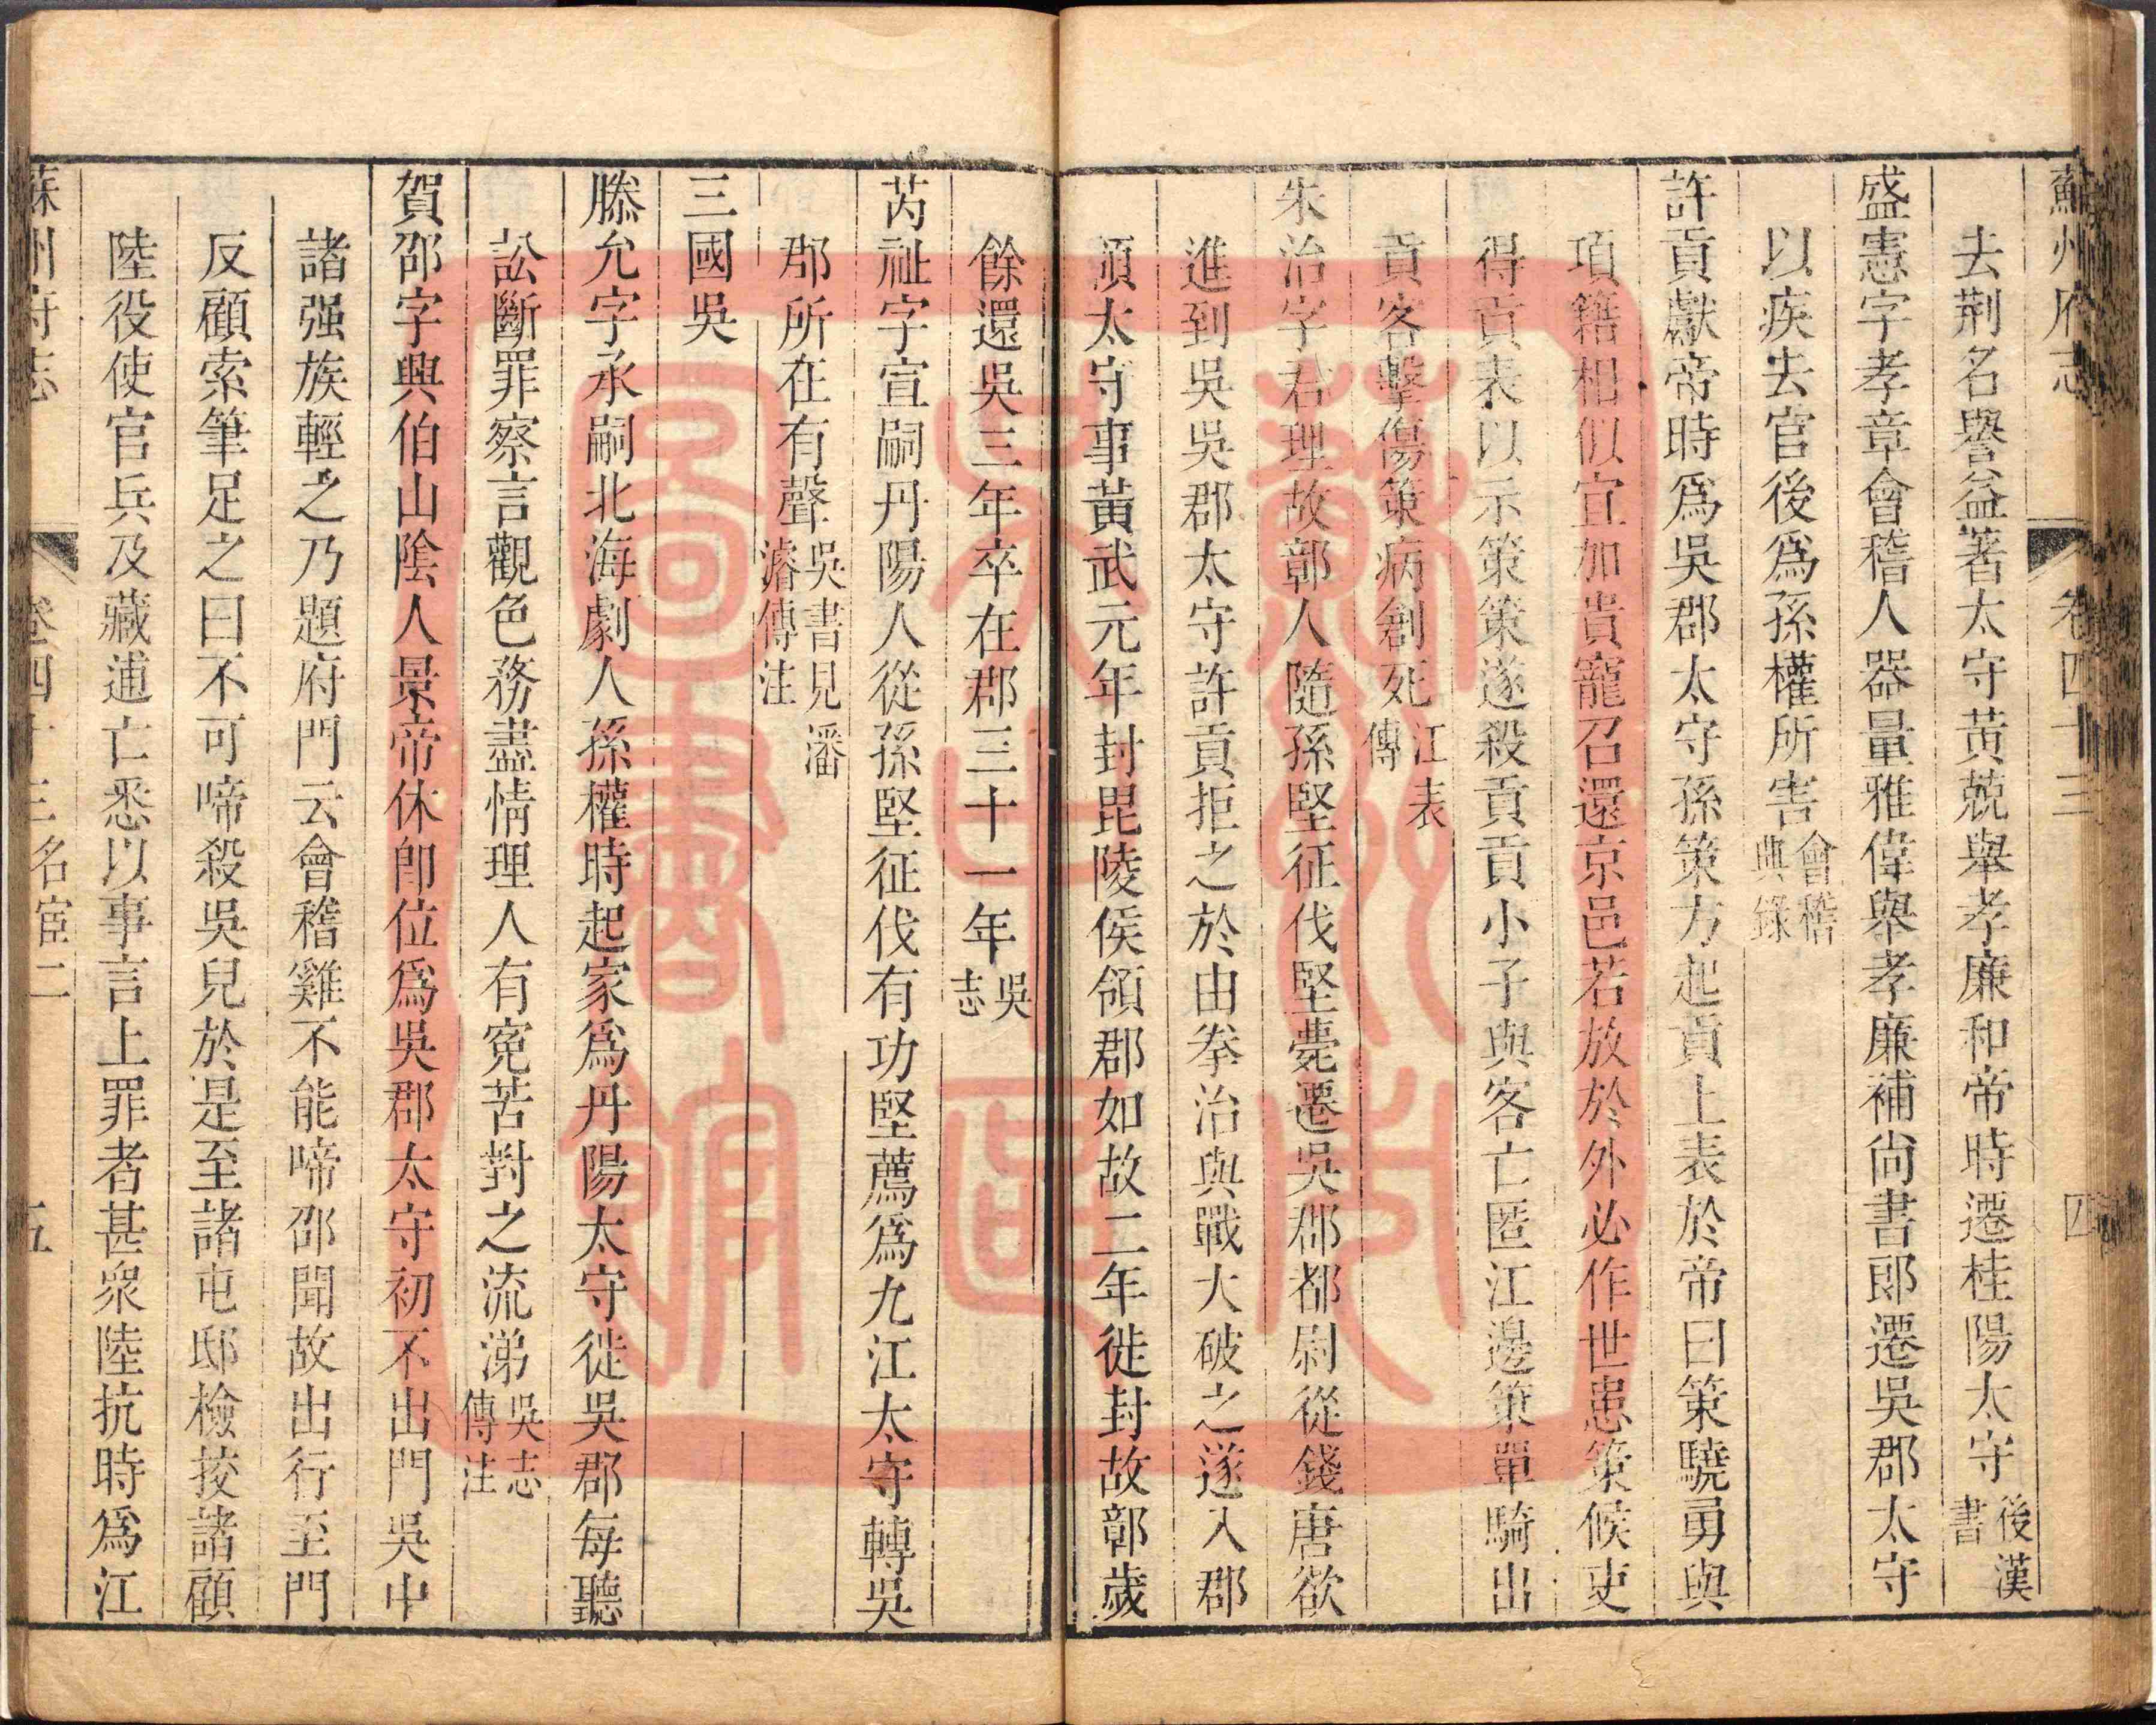 蘇州府志 卷四十三 四
去荆名譽益著太守黃兢舉孝廉和帝時遷桂陽太守後漢書
盛憲字孝章會稽人器量雅偉舉孝廉補尚書郎遷吳郡太守
以疾去官後爲孫權所害會稽典錄
許貢獻帝時爲吳郡太守孫策方起貢上表於帝曰策驍勇與
項籍相似宜加貴寵召還京邑若放於外必作世患策候吏
得貢表以示策策遂殺貢貢小子與客亡匿江邊策單騎出
貢客擊傷策病創死江表傳
朱治字君理故鄣人隨孫堅征伐堅薨遷吳郡都尉從錢唐欲
進到吳吳郡太守許貢拒之於由拳治與戰大破之遂入郡
領太守事黃武元年封毘陵侯領郡如故二年徙封故鄣歲
餘還吳三年卒在郡三十一年吳志
芮祉字宣嗣丹陽人從孫堅征伐有功堅薦爲九江太守轉吳
郡所在有聲吳書見潘濬傳注
三國吳
滕允字承嗣北海劇人孫權時起家爲丹陽太守徙吳郡每聽
訟斷罪察言觀色務盡情理人有寃苦對之流涕吳志傳注
賀邵字興伯山陰人景帝休卽位爲吳郡太守初不出門吳中
諸强族輕之乃題府門云會稽雞不能啼邵聞故出行至門
反顧索筆足之曰不可啼殺吳兒於是至諸屯邸檢挍諸顧
陸役使官兵及藏逋亡悉以事言上罪者甚衆陸抗時爲江
蘇州府志 卷四十三名宦二 五